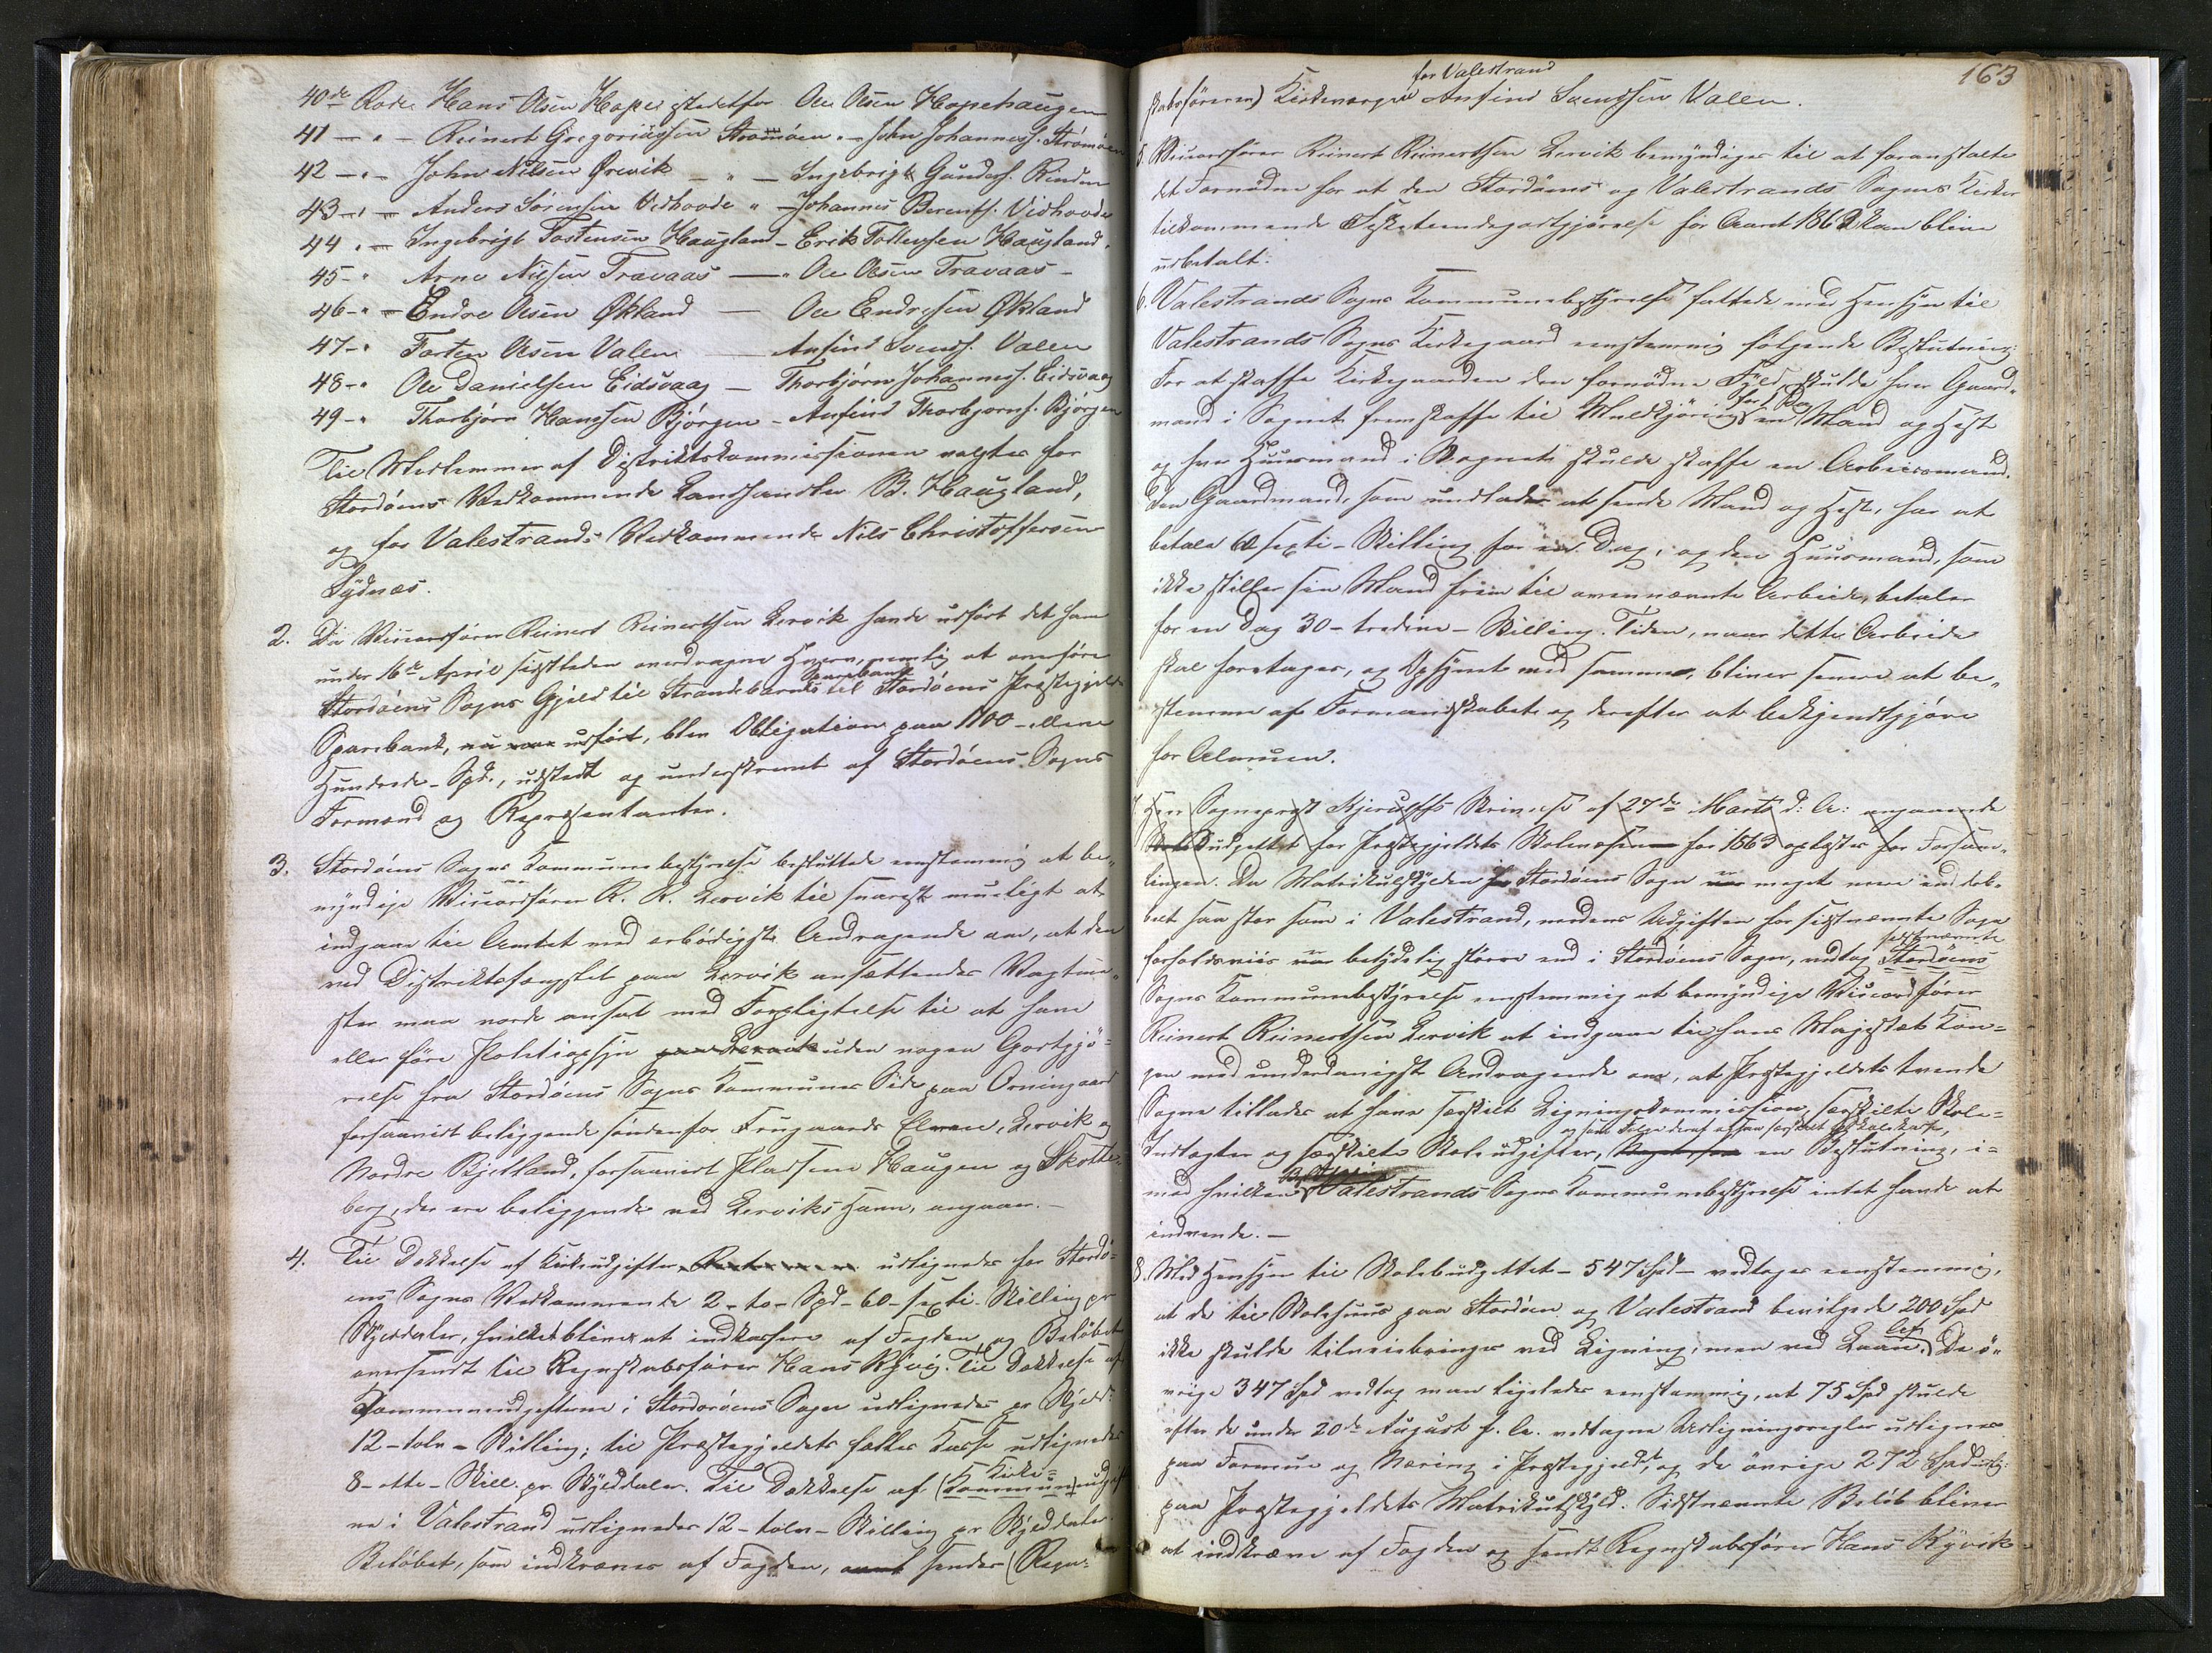 40de Rode Hans Olsen Hope istedetfor Ole Olsen Hopehaugen
41 — " — Reinert Gregoriussen Strømøen " — John Johanness. Strømøen
42 — " — John Nilsen Ørevik — " — Ingebrigt Gunders. Rinden
43 — " — Anders Sørensen Vedhovde " — Johannes Berents. Vidhovde
44 " — Ingebrigt Tostensen Haugland — Erik Tollevsen Haugland.
45 - " Arne Nilsen Travaas — " Ole Olsen Travaas —
46 - " — Endre Olsen Økland — Ole Endresen Økland
47 - " Tosten Olsen Valen — Anfind Svends. Valen
48 - " Ole Danielsen Eidsvaag — Thorbjørn Johanness. Eidsvaag
49 - " Thorbjørn Hanssen Bjørgen — Anfind Thorbjørns. Bjørgen
Til Medlemmer af Distriktskommissionen valgtes for
Stordøens Vedkommende Landhandler B. Haugland,
og for Valestrands Vedkommende Nils Christoffersen
Sydnæs.
2. Da Viceordfører Reinert Reinertsen Lervik havde udført det ham
under 16de April sidstleden overdragne Hverv, nemlig at overføre
Stordøens Sogns Gjeld til Strandebarms Sparebank til Stordøens Præstegjelds
Sparebank, nu var udført, blev Obligation paa 1100 - elleve
Hundrede - Spd., udstedt og underskrevet af Stordøens Sogns
Formænd og Repræsentanter.
3. Stordøens Sogns Kommunebestyrelse besluttede eenstemmig at be-
myndige Viceordfører R. R. Lervik til snarest muligt at
indgaae til Amtet med ærbødigst Andragende om, at den
ved Distriktsfængslet paa Lervik ansættendes Vagtme-
ster maa vorde ansat med Forpligtelse til at have
eller føre Politiopsyn paa Lervik uden nogen Godtgjø-
relse fra Stordøens Sogns Kommunes Side paa
forsaavidt beliggende søndenfor Lervik og
Nordre Bjelland, forsaavidt Pladsene Haugen og Skotte-
berg, der ere beliggende ved Lerviks Havn, angaaer. —
4. Til Dækkelse af Kirkeudgifter udlignedes for Stordø-
ens Sogns Vedkommende 2 - to - Spd - 60 - sexti - Skilling pr
Skylddaler, hvilket bliver at indkassere af Fogden og Beløbet
oversendt til Regnskabsfører Hans Rysvig. Til Dækkelse af
Kommuneudgifterne i Stordøens Sogn udlignedes pr Skyldd.
12 - tolv - Skilling; til Præstegjeldets fælles Kasse udlignedes
8 - otte - Skill. pr Skylddaler. Til Dækkelse af (Kommune) Kirke-udgift
ne i Valestrand udlignedes 12 - tolv - Skilling pr Skylddaler.
Beløbet, som indkræves af Fogden, samt sendes (Regn-
163
skabsføreren) Kirkeværgen for Valestrand Anfind Svendsen Valen.
5. Viceordfører Reinert Reinertsen Lervik bemyndiges til at foranstalte
det Fornødne for at den Stordøens og Valestrands Sognes Kirker
tilkommende Fisketiendegodtgjørelse for Aaret 1862 kan blive
udbetalt.
6. Valestrands Sogns Kommunebestyrelse fattede med Hensyn til
Valestrands Sogns Kirkegaard eenstemmig følgende Beslutning:
For at skaffe Kirkegaarden den fornødne Fyld, skulde hver Gaard-
mand i Sognet fremskaffe til Muldkjøring for 1 Dag en Mand og Hest
og hver Huusmand i Sognet skulde skaffe en Arbeidsmand.
Den Gaardmand, som undlader at sende Mand og Hest, har at
betale 60 sexti - Skilling for en Dag, og den Huusmand, som
ikke stiller sin Mand frem til ovennævnte Arbeide, betaler
for en Dag 30 - tredive - Skilling. Tiden, naar dette Arbeide
skal foretages, og Opsynet med samme, bliver senere at be-
stemme af Formandskabet og derefter at bekjendtgjøre
for Almuen.
7. Herr Sognepræst Kjerulffs Skrivelse af 27de Marts d: A: angaaende
Skolebudgettet for Præstegjeldets Skolevæsen for 1863 oplæstes for Forsam-
lingen. Da Matrikulskylden for Stordøens Sogn er meget mere end dob-
belt saa stor som i Valestrand, medens Udgiften for sidstnævnte Sogn
forholdsviis er betydelig større end i Stordøens Sogn, vedtog sidstnævnte Stordøens
Sogns Kommunebestyrelse eenstemmig at bemyndige Viceordfører
Reinert Reinertsen Lervik at indgaae til Hans Majestæt Kon-
gen med underdanigst Andragende om, at Præstegjeldets tvende
Sogne tillades at have særskilt Ligningskommission, særskilte Skole-
Indtægter og særskilte Skoleudgifter, og som Følge deraf ogsaa særskilt Skolekasse, en Beslutning, i-
mod hvilken Valestrands Sogns Kommunebestyrelse intet havde at
indvende. —
8. Med Hensyn til Skolebudgettet — 547 Spd — vedtoges eenstemmig,
at de til Skolehuus paa Stordøen og Valestrand bevilgede 200 Spd
ikke skulde tilveiebringes ved Ligning, men ved Laan. De ø-
vrige 347 Spd vedtog man ligeledes eenstemmig, at 75 Spd skulde
efter de under 20de August f. A. vedtagne Udligningsregler udlignes
paa Formue og Næring i Præstegjeldet, og de øvrige 272 Spd
paa Præstegjeldets Matrikulskyld. Sidstnævnte Beløb bliver
at indkræve af Fogden og sendt Regnskabsfører Hans Rysvik